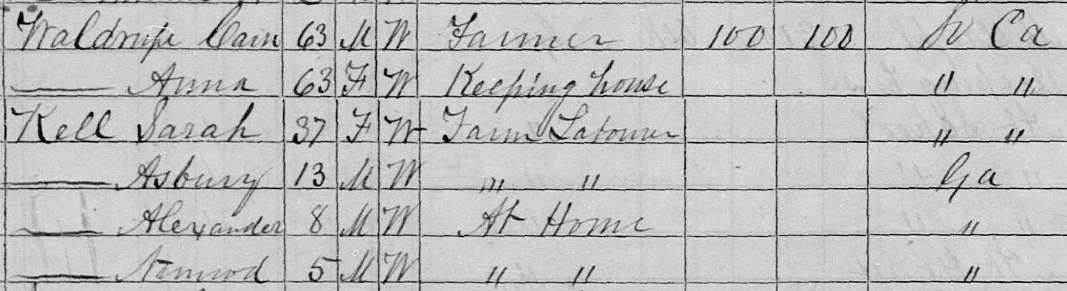 Waldrupe Cain 63 M W Farmer 100 100 So Ca
—— Anna 63 F W Keeping house " "
Kell Sarah 37 F W Farm Labourer " "
—— Asbury 13 M W " " Ga
—— Alexander 8 M W At Home "
—— Nimrod 5 M W " " "